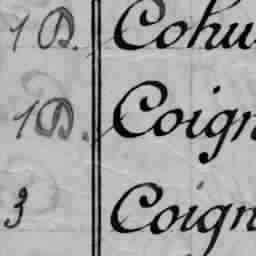 1 D. Cohu
1 D. Coign
3 Coign